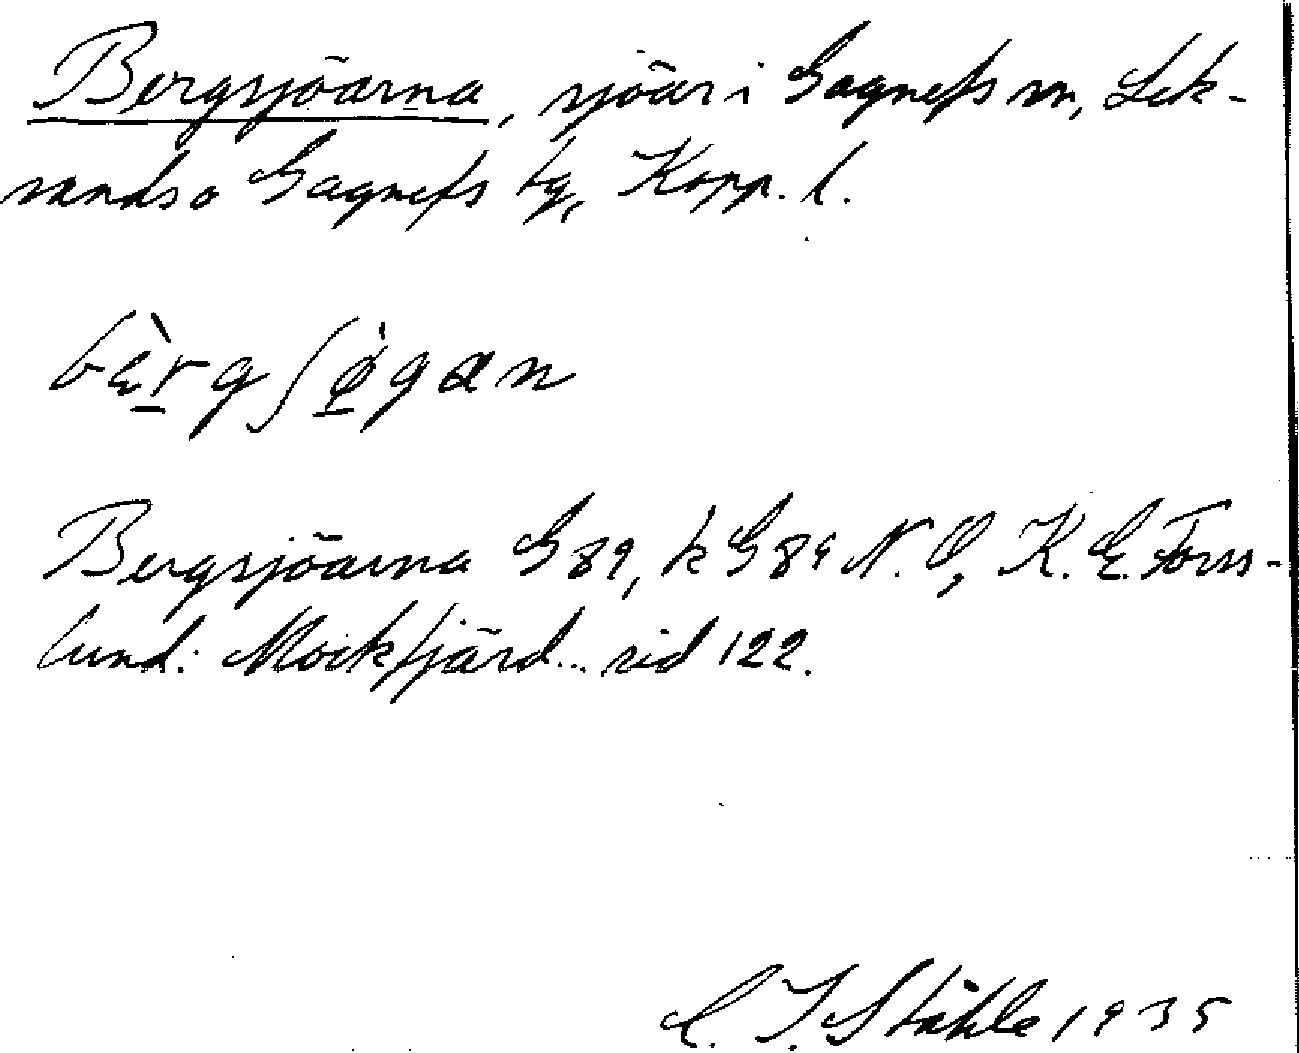 Bergsjöarna, sjöar i Gagnefs sn, Lek-
sands o Gagnefs tg, Kopp. l.
bɛ̀rgʃø̀gan
Bergsjöarna G89, k G89 N.O, K. E. Forss-
lund: Mockfjärd... sid 122.
C. I. Ståhle 1935